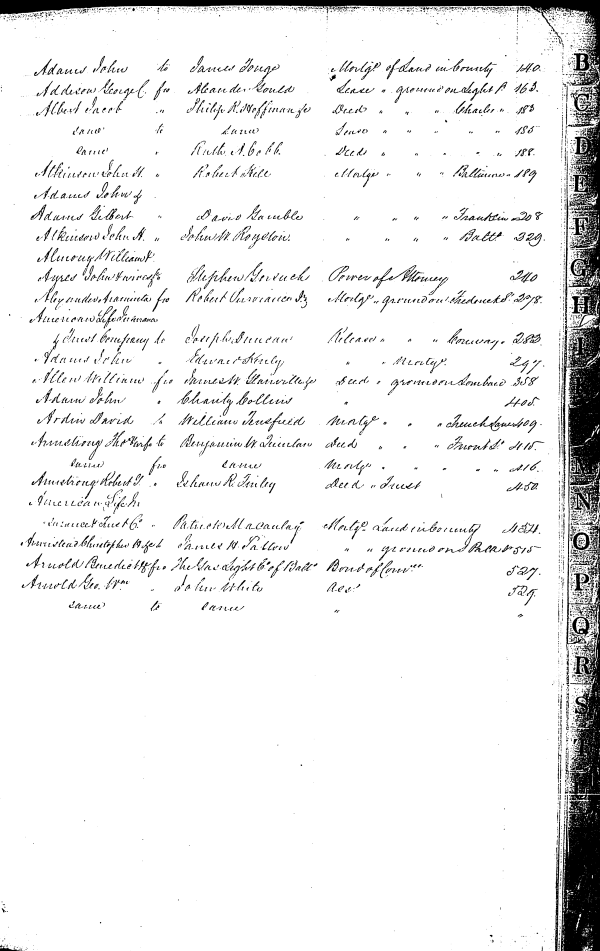 Adams John to James Tonge Mortge of Land in County 140.
Addison George C. fro Alexander Gould Lease " ground on Light St 163.
Albert Jacob " Philip R. Hoffman Deed " " " Charles " 183
same to same Lease " " " " " 185
same " Ruth A. Cobb. Deed " " " " " 188.
Atkinson John H. " Robert Kell Mortge " " " Baltimore " 189
Adams John &
Adams Gilbert " David Gamble " " " " Franklin " 208
Atkinson John H. " John W. Royston. " " " " Balto " 229.
Almony William &
Ayres John to Stephen Gorsuch Power of Attorney 240
Alexander Araminta fro Robert Mortge " ground on Frederick St 278.
American Life Insurance
& Trust Company to Joseph Duncan Release " " " Conway " 282.
Adams John " Edward " " Mortge. 297.
Allen William fro James W. Glanville Deed " ground on Lombard 358
Adam John " Charity Collins " 405.
Ardin David to William Mortge " " " French Lane 409.
Armstrong Thos & wife to Benjamin W. Deed " " " Front St " 415.
same fro same Mortge " " " " " 416.
Armstrong Robert T. " Isham R. Finley Deed " Trust 450.
American Life In
surance & Trust Co " Patrick Macaulay Mortge Land in County 454.
Armistead Christopher James H. " " ground on 515
Arnold Benedict W fro The Gas Light Co of Balto Bond of Con 527.
Arnold Geo. Wm " John White Asst 529.
same to same " "
B
C
D
E
F
G
H
I
N
O
P
Q
R
S